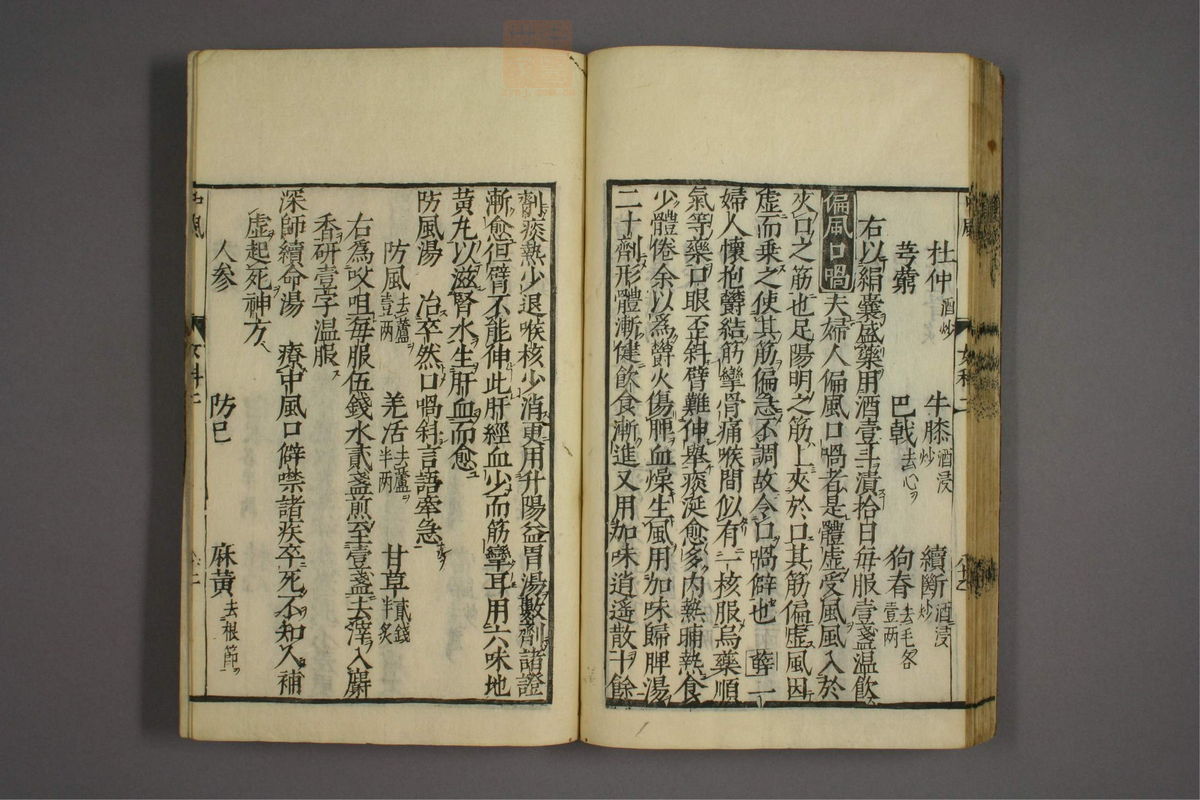 杜仲酒炒 牛膝酒浸炒 續斷酒浸炒
芎藭 巴戟去心 狗脊去毛各壹两
右以絹囊盛藥用酒壹斗漬拾日每服壹盞温飲
偏風口喎 夫婦人偏風口喎者是體虚受風風入於
夾口之筋也足陽明之筋上夾於口其筋偏虚風因
虚而乗之使其筋偏急不調故令口喎僻也 薛 一
婦人懷抱欝結筋攣骨痛喉間似有一核服烏藥順
氣等藥口眼歪斜臂難伸舉痰涎愈多内熱晡熱食
少體倦余以爲欝火傷脾血燥生風用加味歸脾湯
二十劑形體漸健飲食漸進又用加味逍遥散十餘
劑痰熱少退喉核少消更用升陽益胃湯數劑諸證
漸愈但臂不能伸此肝經血少而筋攣耳用六味地
黄丸以滋腎水生肝血而愈
防風湯 治卒然口喎斜言語牽急
防風去蘆壹两 羌活去蘆半两 甘草貳錢半炙
右爲㕮咀每服伍錢水貳盞煎至壹盞去滓入麝
香研壹字温服
深師續命湯 療中風口僻噤諸疾卒死不知人補
虚起死神方
人参 防已 麻黄去根節
中風 女科二